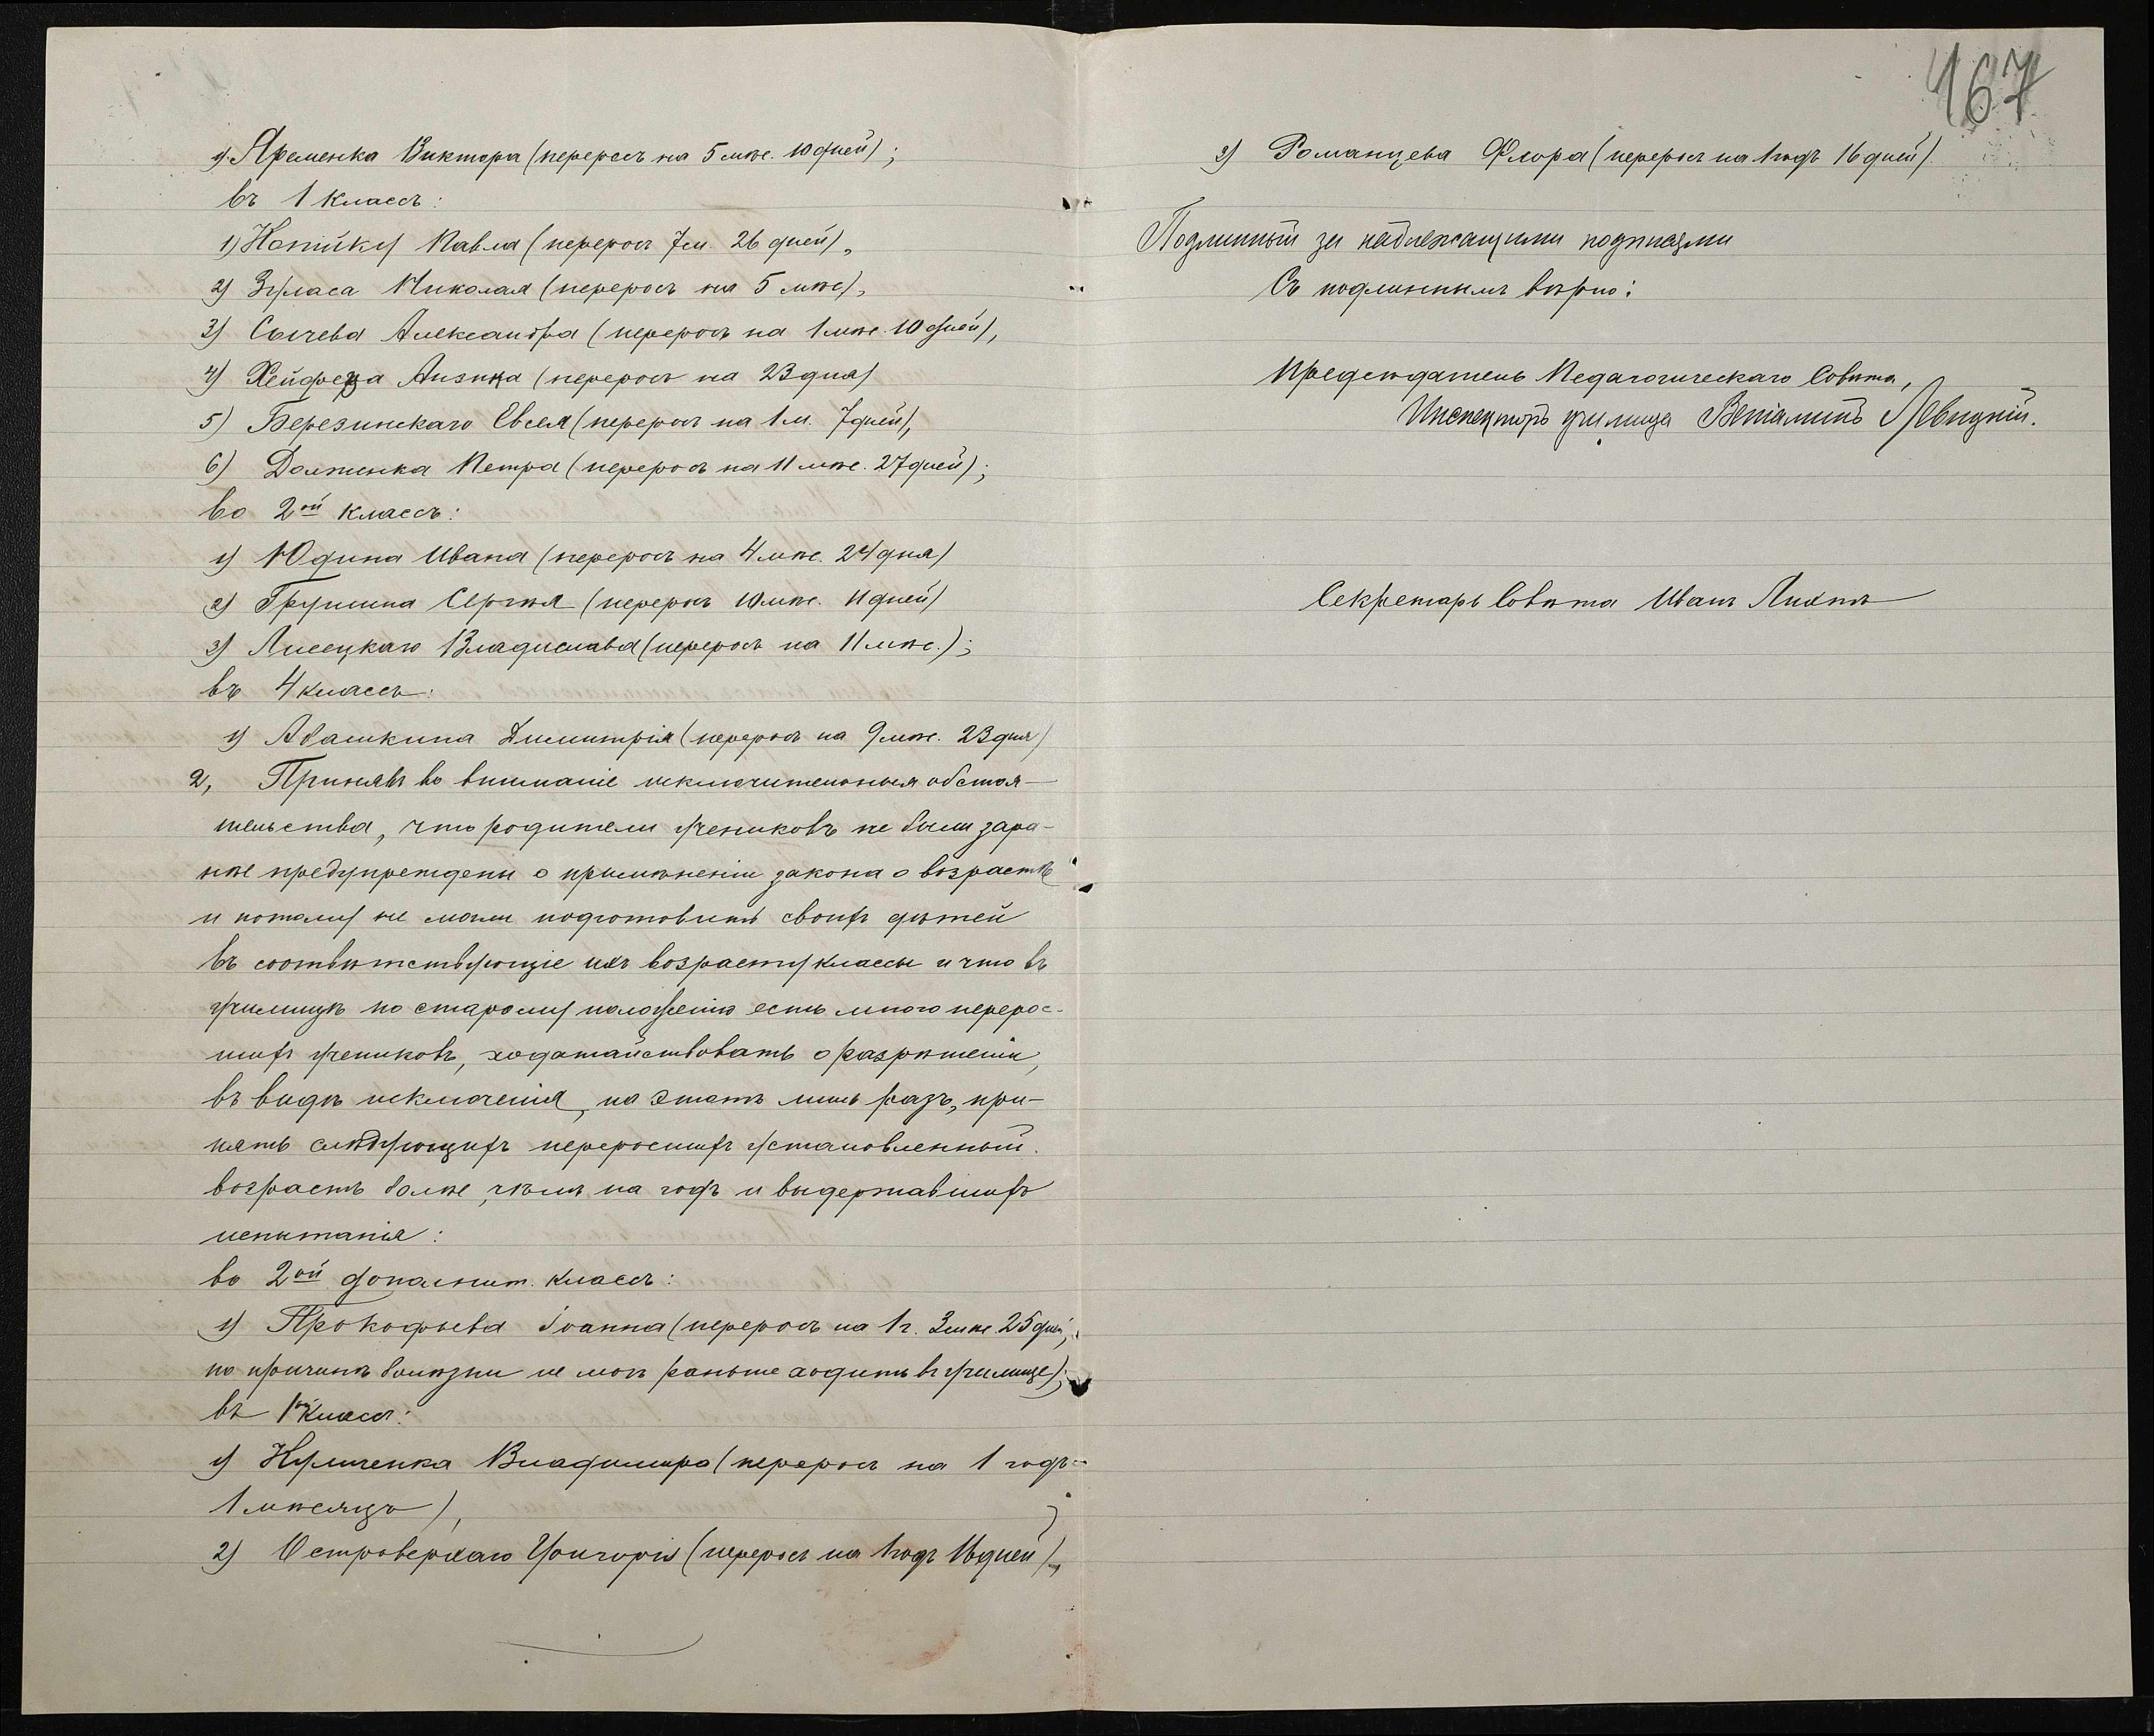 1) Яременка Виктора (переросъ на 5 мѣс. 10 дней);
въ 1 классъ:
1) Копійку Павла (переросъ 7 м. 26 дней),
2) Згуласа Николая (переросъ на 5 мѣс),
3) Сычева Александра (переросъ на 1 мѣс. 10 дней),
4) Хейфеца Айзика (переросъ на 23 дня)
5) Березинскаго Евсея (переросъ на 1 м. 7 дней),
6) Долженка Петра (переросъ на 11 мѣс. 27 дней);
во 2ой классъ:
1) Юдина Ивана (переросъ на 4 мѣс. 24 дня)
2) Грушина Сергѣя (переросъ 10 мѣс. 11 дней)
3) Лисецкаго Владислава (переросъ на 11 мѣс.);
въ 4 классъ:
1) Абашкина Димитрія (переросъ на 9 мѣс. 23 дня)
2, Принявъ во вниманіе исключительныя обстоя-
тельства, что родители учениковъ не были зара-
нѣе предупреждены о примѣненіи закона о возрастѣ
и потому не могли подготовить своихъ дѣтей
въ соотвѣтствующіе ихъ возрасту классы и что въ
училищѣ по старому положенію есть много перерос-
шихъ учениковъ, ходатайствовать о разрѣшеніи,
въ видѣ исключенія, на этотъ лишь разъ, при-
нять слѣдующихъ переросшихъ установленный
возрастъ болѣе, чѣмъ на годъ и выдержавшихъ
испытанія:
во 2ой дополнит. классъ:
1) Прокофьева Іоанна (переросъ на 1 г. 3 мѣс. 25 дней,
по причинѣ болѣзни не могъ раньше ходить въ училище);
въ 1ый классъ:
1) Куличенка Владимира (переросъ на 1 годъ
1 мѣсяцъ),
2) Островерхаго Григорія (переросъ на 1 годъ 16 дней),
167
3) Романцева Флора (переросъ на 1 годъ 16 дней)
Подлинный за надлежащими подписями
Съ подлиннымъ вѣрно:
Предсѣдатель Педагогическаго Совѣта,
Инспекторъ училища Веніаминъ Левицкій.
Секретарь Совѣта Иванъ